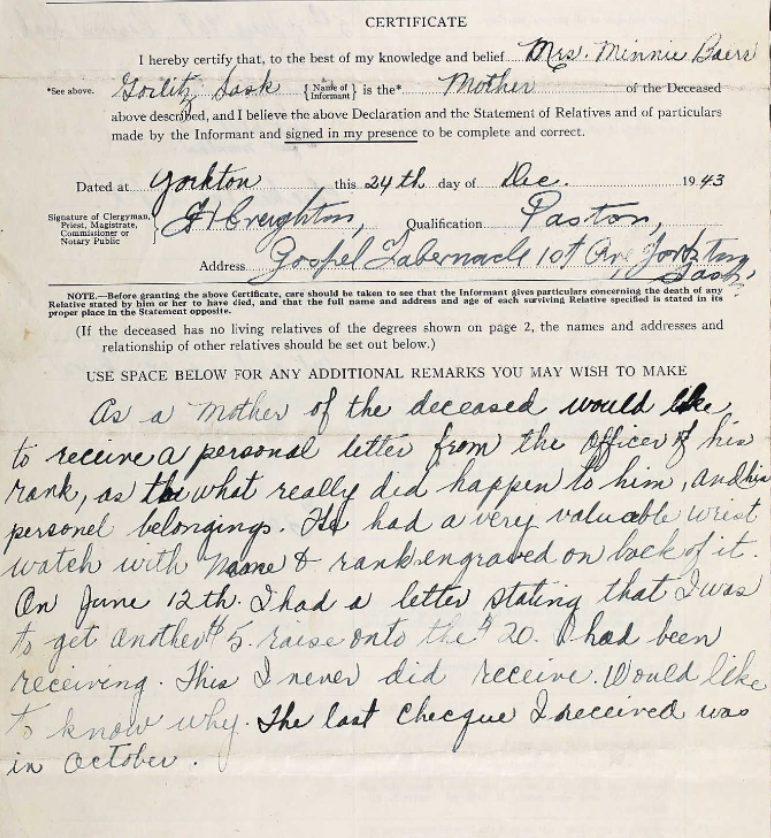 CERTIFICATE
I hereby certify that, to the best of my knowledge and belief Mrs. Minnie Baers
*See above. Gorlitz Sask {Name of Informant} is the* Mother of the Deceased
above described, and I believe the above Declaration and the Statement of Relatives and of particulars
made by the Informant and signed in my presence to be complete and correct.
Dated at Yorkton, this 24th day of Dec. 1943
Signature of Clergyman, Priest, Magistrate, Commissioner or Notary Public } Creighton, Qualification Pastor,
Address Gospel Tabernacle 1st Ave Yorkton
Sask.
NOTE.—Before granting the above Certificate, care should be taken to see that the Informant gives particulars concerning the death of any
Relative stated by him or her to have died, and that the full name and address and age of each surviving Relative specified is stated in its
proper place in the Statement opposite.
(If the deceased has no living relatives of the degrees shown on page 2, the names and addresses and
relationship of other relatives should be set out below.)
USE SPACE BELOW FOR ANY ADDITIONAL REMARKS YOU MAY WISH TO MAKE
As a Mother of the deceased would like
to receive a personal letter from the officer of his
rank, as to what really did happen to him, and his
personel belongings. He had a very valuable wrist
watch with Name & rank engraved on back of it.
On June 12th. I had a letter stating that I was
to get another $5. raise onto the $20. I had been
receiving. This I never did receive. Would like
to know why. The last checque I received was
in October.